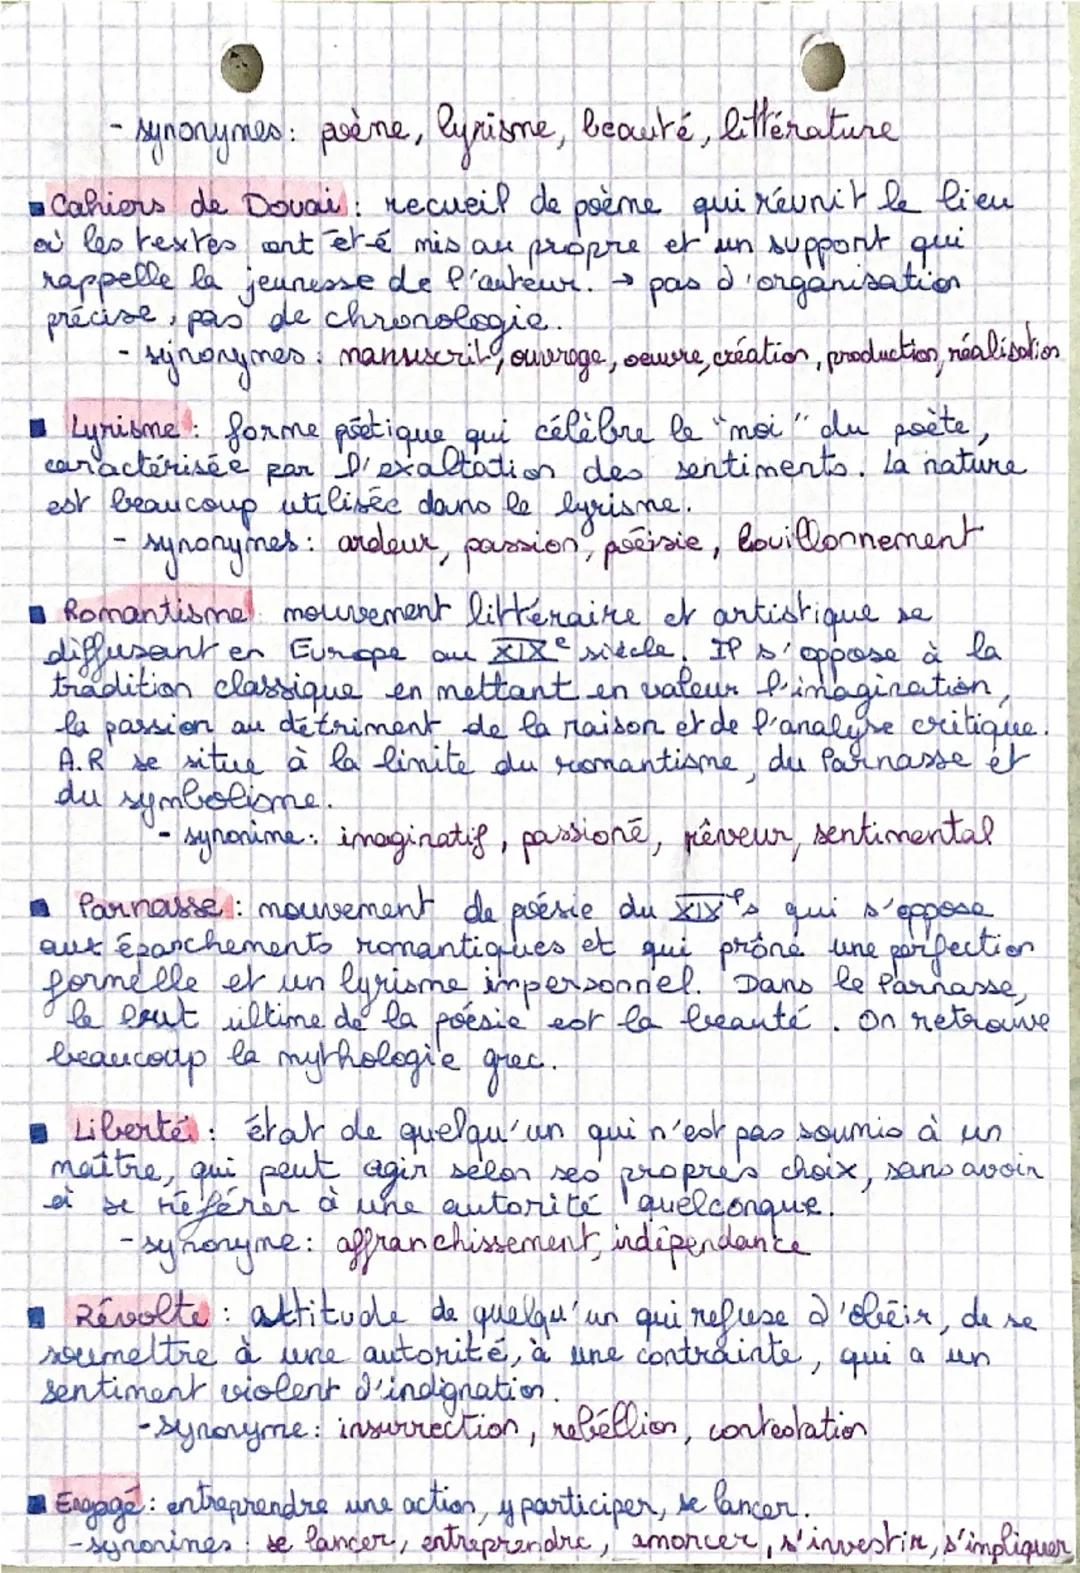 - synonymes : poème, lyrisme, beauté, littérature
Cahiers de Douai : recueil de poème qui réunit le lieu
où les textes ont été mis au propre et un support qui
rappelle la jeunesse de l'auteur. → pas d'organisation
précise, pas de chronologie.
- synonymes : manuscrit, ouvrage, oeuvre, création, production, réalisation
Lyrisme : forme poétique qui célèbre le "moi" du poète,
caractérisée par l'exaltation des sentiments. La nature
est beaucoup utilisée dans le lyrisme.
- synonymes : ardeur, passion, poésie, bouillonnement
Romantisme : mouvement littéraire et artistique se
diffusant en Europe au XIXe siècle. Il s'oppose à la
tradition classique en mettant en valeur l'imagination,
la passion au détriment de la raison et de l'analyse critique.
A.R se situe à la limite du romantisme, du Parnasse et
du symbolisme.
- synonime : imaginatif, passioné, rêveur, sentimental
Parnasse : mouvement de poésie du XIXe s qui s'oppose
aux épanchements romantiques et qui prône une perfection
formelle et un lyrisme impersonnel. Dans le Parnasse,
le but ultime de la poésie est la beauté. On retrouve
beaucoup la mythologie grec.
Liberté : état de quelqu'un qui n'est pas soumis à un
maître, qui peut agir selon ses propres choix, sans avoir
à se référer à une autorité quelconque.
- synonyme : affranchissement, indépendance
Révolte : attitude de quelqu'un qui refuse d'obéir, de se
soumettre à une autorité, à une contrainte, qui a un
sentiment violent d'indignation.
- synonyme : insurrection, rebéllion, contestation
Engagé : entreprendre une action, y participer, se lancer.
- synonimes : se lancer, entreprendre, amorcer, s'investir, s'impliquer